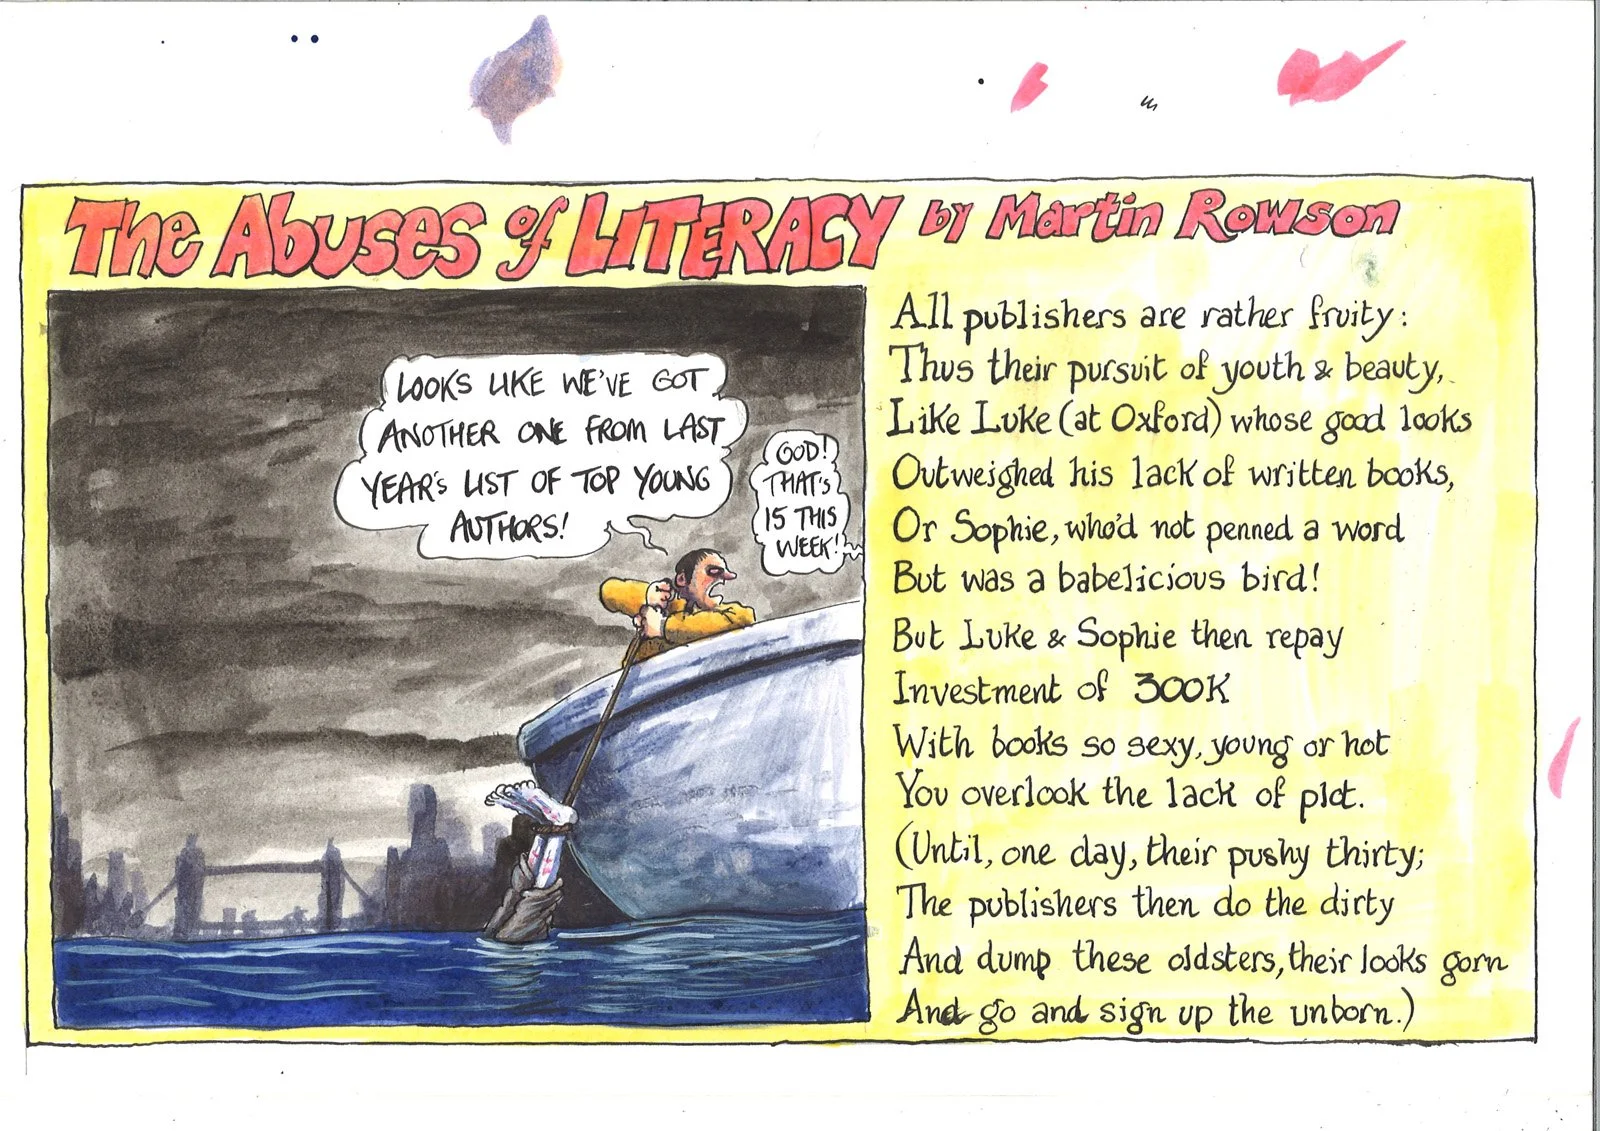 The Abuses of LITERACY by Martin Rowson
LOOKS LIKE WE'VE GOT
ANOTHER ONE FROM LAST
YEAR'S LIST OF TOP YOUNG
AUTHORS!
GOD!
THAT'S
15 THIS
WEEK!
All publishers are rather fruity:
Thus their pursuit of youth & beauty,
Like Luke (at Oxford) whose good looks
Outweighed his lack of written books,
Or Sophie, who'd not penned a word
But was a babelicious bird!
But Luke & Sophie then repay
Investment of 300K
With books so sexy, young or hot
You overlook the lack of plot.
(Until, one day, their pushy thirty;
The publishers then do the dirty
And dump these oldsters, their looks gorn
And go and sign up the unborn.)